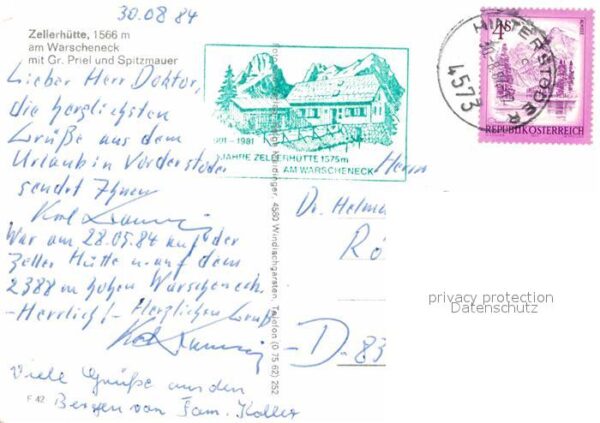 30.08.84
Zellerhütte, 1566 m
am Warscheneck
mit Gr. Priel und Spitzmauer
Lieber Herr Doktor,
die herzlichsten
Grüße aus dem
Urlaub in Vorderstoder
sendet Ihnen
Karl
War am 28.05.84 auf der
Zeller Hütte u. auf dem
2388 m hohen Warscheneck.
-Herrlich!- Herzlichen Gruß
Karl
Viele Grüße aus den
Bergen von Fam. Koller
F 42
4580 Windischgarsten, Telefon (0 75 62) 252
- 1981
JAHRE ZELLERHÜTTE 1575m
AM WARSCHENECK
4S
REPUBLIK ÖSTERREICH
HINTERSTODER
4573
Herrn
Dr. Helmu
Rö
-D-83
privacy protection
Datenschutz